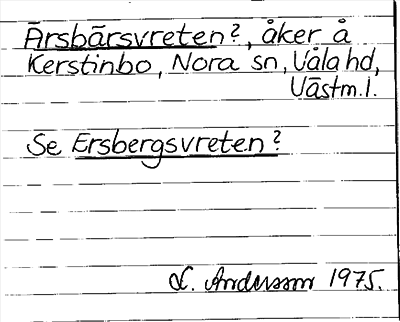 Ärsbärsvreten?, åker å
Kerstinbo, Nora sn, Våla hd,
Västm. l.
Se Ersbergsvreten?
L. Andersson 1975.